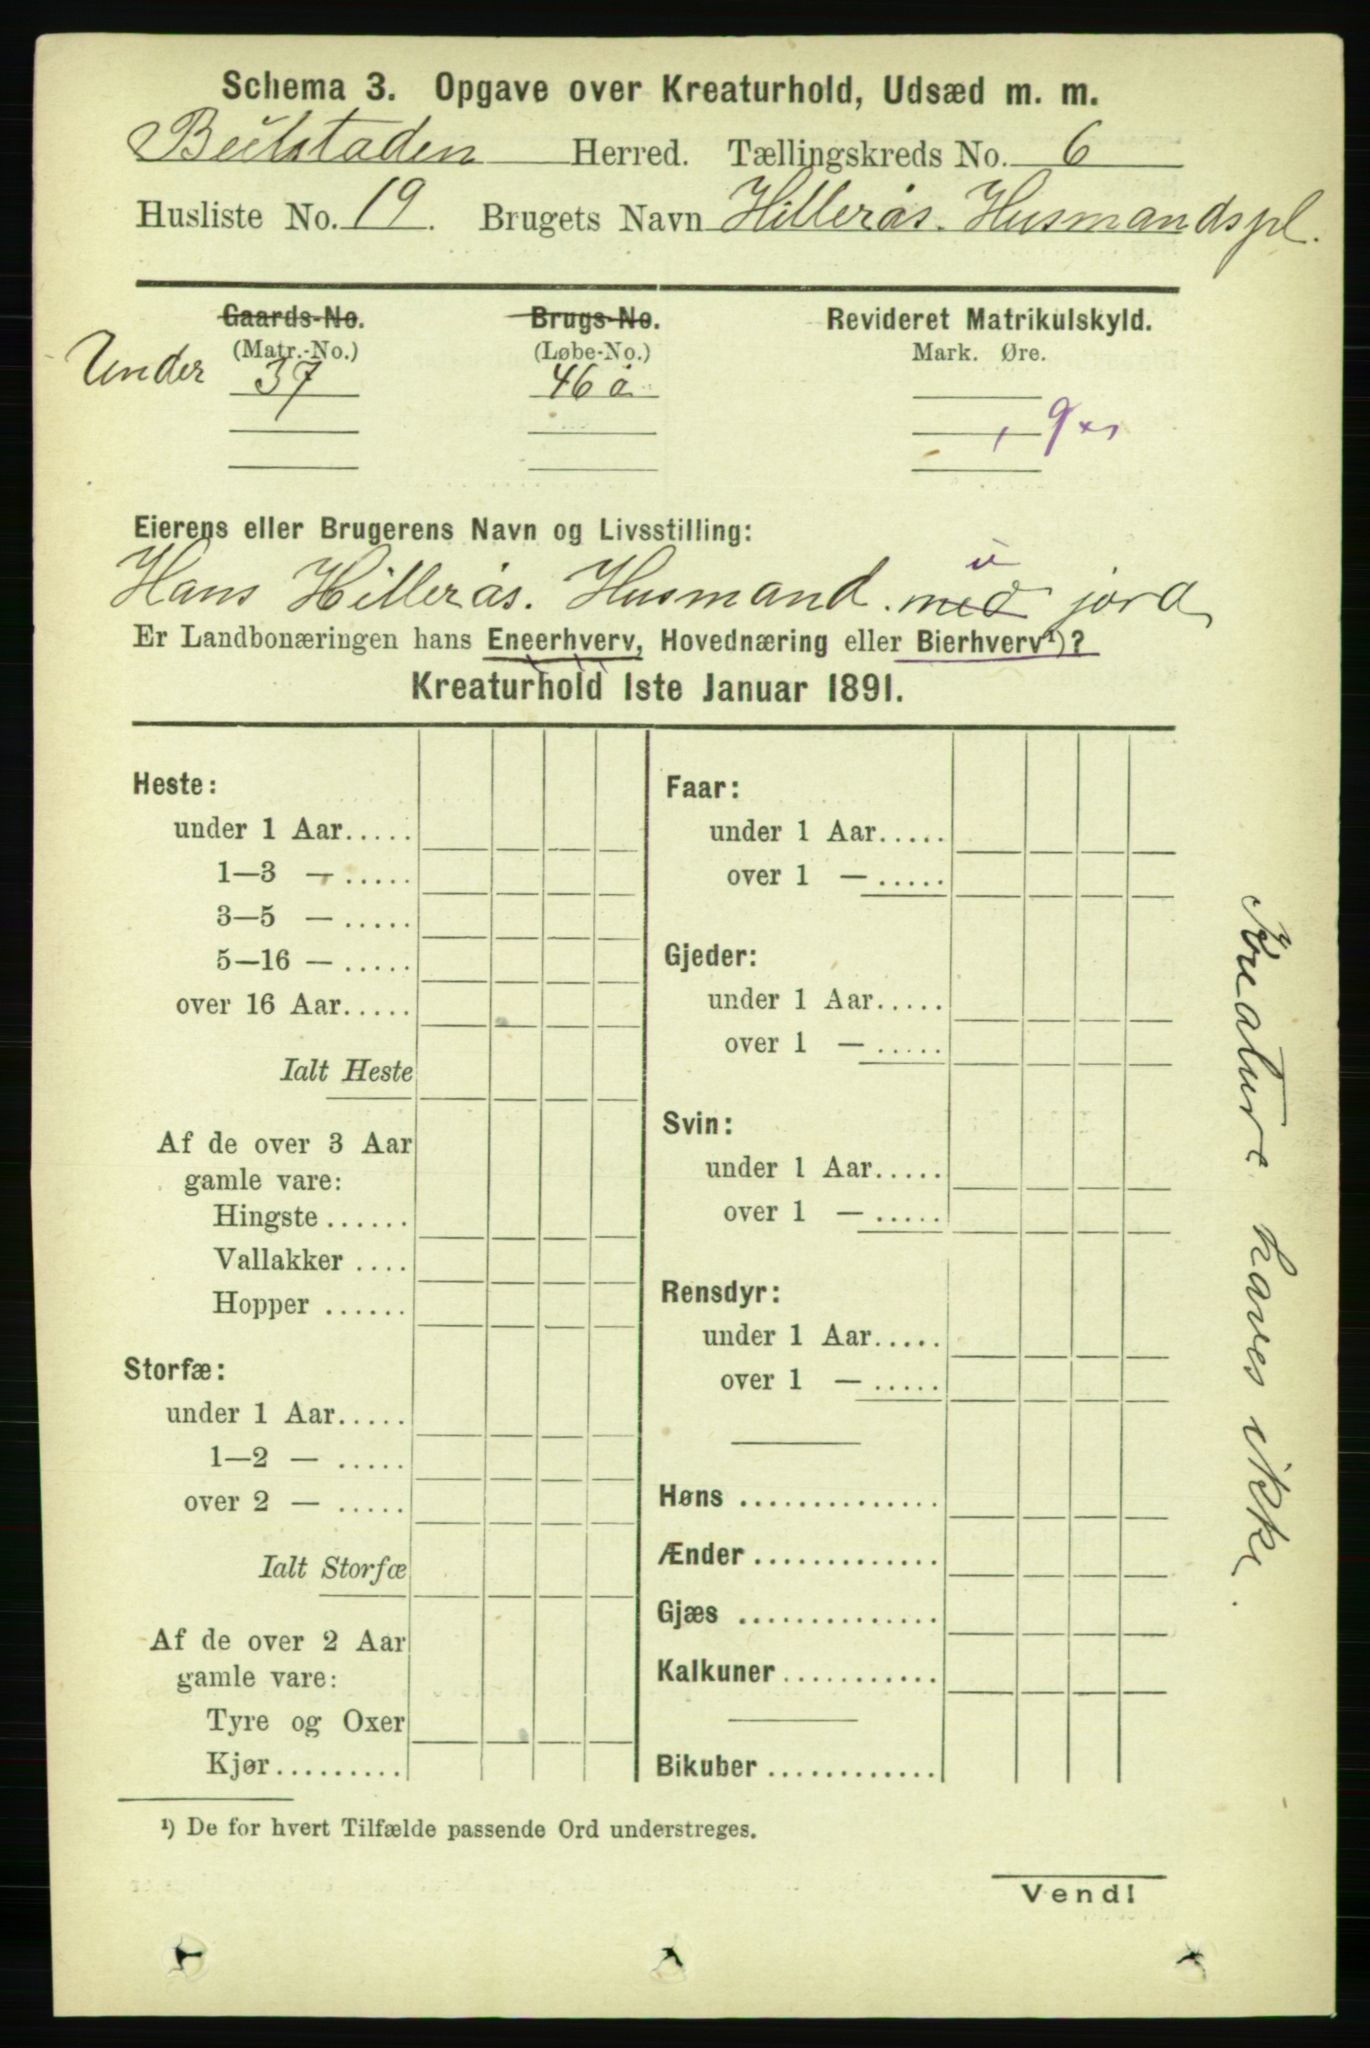 Schema 3. Opgave over Kreaturhold, Udsæd m. m.
Beitstaden Herred. Tællingskreds No. 6
Husliste No. 19. Brugets Navn Hillerås. Husmandspl.
Gaards-No. Brugs-No. Revideret Matrikulskyld.
(Matr.-No.) (Løbe-No.) Mark. Øre.
Under 37 46 a
, 9
Eierens eller Brugerens Navn og Livsstilling:
u
Hans Hillerås. Husmand. med jord
Er Landbonæringen hans Eneerhverv, Hovednæring eller Bierhverv¹)?
Kreaturhold 1ste Januar 1891.
Heste:
under 1 Aar.....
1—3 — .....
3—5 — .....
5—16 — .....
over 16 Aar.....
Ialt Heste
Af de over 3 Aar
gamle vare:
Hingste ......
Vallakker ....
Hopper ......
Storfæ:
under 1 Aar.....
1—2 — .....
over 2 — .....
Ialt Storfæ
Af de over 2 Aar
gamle vare:
Tyre og Oxer
Kjør.........
Faar:
under 1 Aar.....
over 1 — .....
Gjeder:
under 1 Aar.....
over 1 — .....
Svin:
under 1 Aar.....
over 1 — .....
Rensdyr:
under 1 Aar.....
over 1 — .....
Høns ..............
Ænder .............
Gjæs ..............
Kalkuner ...........
Bikuber ............
Kreature haves ikke.
¹) De for hvert Tilfælde passende Ord understreges.
Vend!